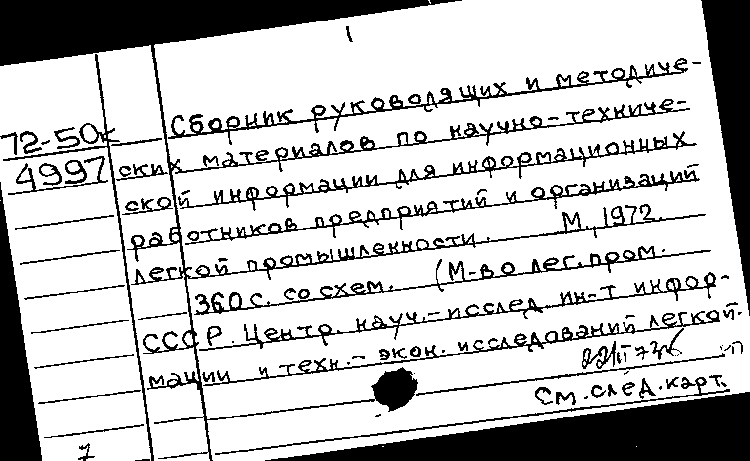 1
72-50к
4997
Сборник руководящих и методиче-
ских материалов по научно-техниче-
ской информации для информационных
работников предприятий и организаций
легкой промышленности. М., 1972.
360 с. со схем. (М-во лег. пром.
СССР. Центр. науч.-исслед. ин-т инфор-
мации и техн.-экон. исследований легкой.
См. след. карт.
7